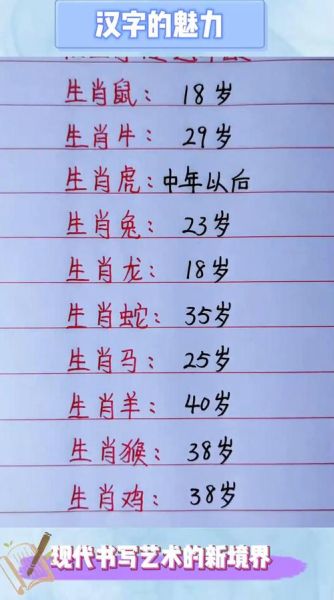 汉字的魅力
生肖鼠： 18岁
生肖牛： 29岁
生肖虎：中年以后
生肖兔： 23岁
生肖龙： 18岁
生肖蛇： 35岁
生肖马： 25岁
生肖羊： 40岁
生肖猴： 38岁
生肖鸡： 38岁
现代书写艺术的新境界